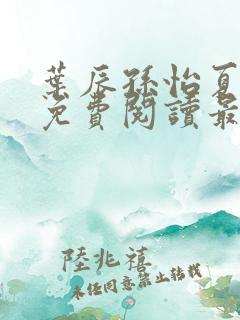 葉辰孫怡夏
免費閱讀最
陸兆禧
未經同意禁止轉載